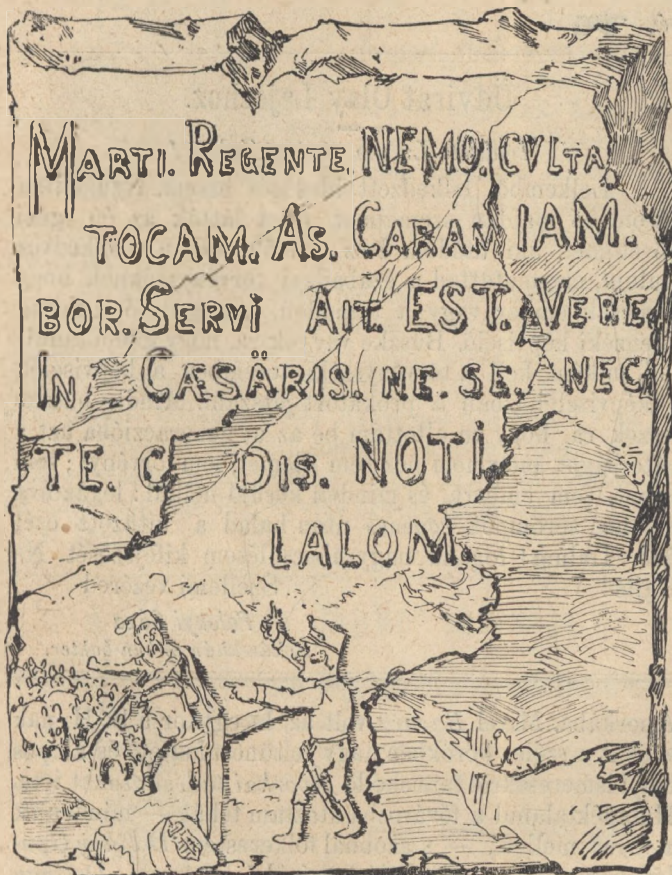 MARTI. REGENTE. NEMO. CVLTA.
TOCAM. AS. CARAM IAM.
BOR. SERVI AIT. EST. VERE.
IN CÆSÄRIS. NE. SE. NEC
TE. C DIS. NOTI
LALOM.